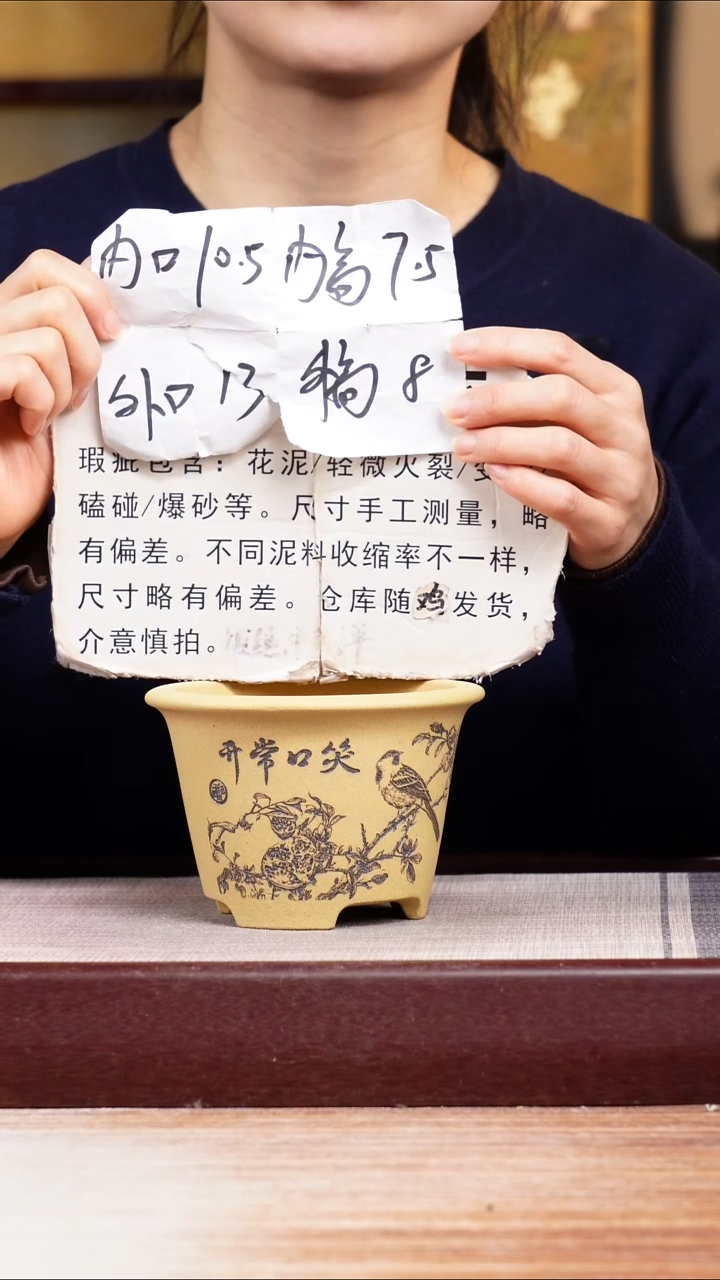 内口10.5 内高7.5
外口 13 外高 8
瑕疵包含：花泥/轻微火裂/变
磕碰/爆砂等。尺寸手工测量，略
有偏差。不同泥料收缩率不一样，
尺寸略有偏差。仓库随鸡发货，
介意慎拍。
笑口常开